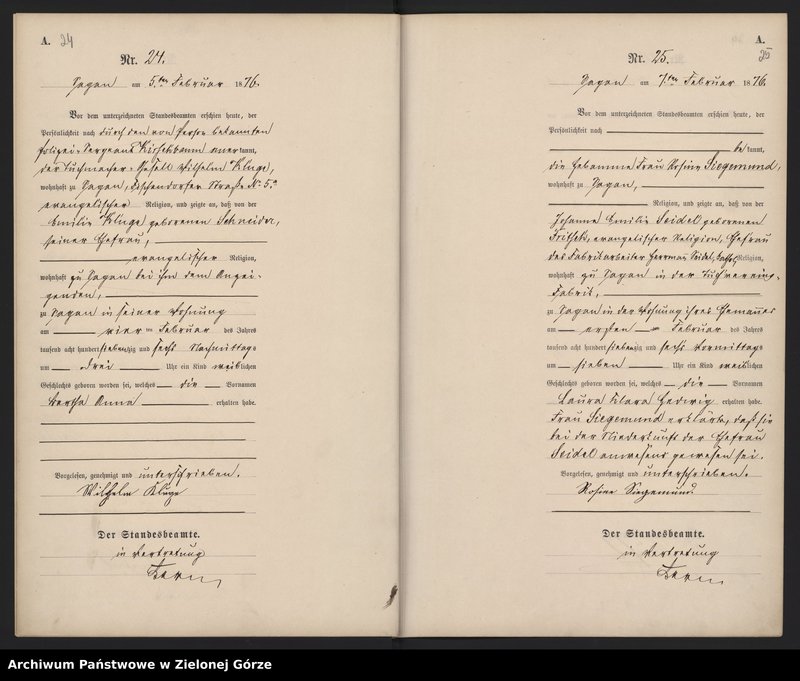 A. 24
Nr. 24.
Sagan am 5ten Februar 1876.
Vor dem unterzeichneten Standesbeamten erschien heute, der
Persönlichkeit nach durch den von Person bekannten
Polizei-Sergeant Kirschbaum anerkannt,
der Tuchmacher-Gesell Wilhelm Kluge,
wohnhaft zu Sagan, Straße No. 5.
evangelischer Religion, und zeigte an, daß von der
Emilie Kluge geborenen Schneider,
seiner Ehefrau,
evangelischer Religion,
wohnhaft zu Sagan bei ihm dem Anzei-
genden,
zu Sagan in seiner Wohnung
am vier ten Februar des Jahres
tausend acht hundert siebenzig und sechs Nachmittags
um drei Uhr ein Kind weiblichen
Geschlechts geboren worden sei, welches die Vornamen
Bertha Anna erhalten habe.
Vorgelesen, genehmigt und unterschrieben.
Wilhelm Kluge
Der Standesbeamte.
in Vertretung
A.
25
Nr. 25.
Sagan am 7ten Februar 1876.
Vor dem unterzeichneten Standesbeamten erschien heute, der
Persönlichkeit nach
bekannt,
die Hebamme Frau Rosine Siegemund,
wohnhaft zu Sagan,
Religion, und zeigte an, daß von der
Johanne Emilie Seidel geborenen
evangelischer Religion, Ehefrau
des Fabrikarbeiter Herrman Seidel, Religion,
wohnhaft zu Sagan in der
Fabrik,
zu Sagan in der Wohnung ihres Ehemanes
am ersten Februar des Jahres
tausend acht hundert siebenzig und sechs Vormittags
um sieben Uhr ein Kind weiblichen
Geschlechts geboren worden sei, welches die Vornamen
Laura Klara Hedwig erhalten habe.
Frau Siegemund erklärte, daß sie
bei der Niederkunft der Ehefrau
Seidel anwesend gewesen sei.
Vorgelesen, genehmigt und unterschrieben.
Rosine Siegemund
Der Standesbeamte.
in Vertretung
Archiwum Państwowe w Zielonej Górze